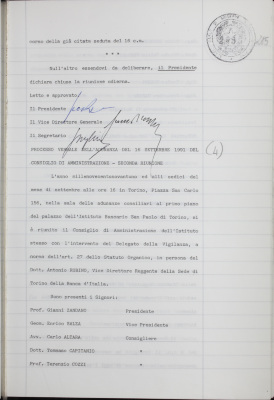 corso della già citata seduta del 10 c.m.
* * *
Null'altro essendovi da deliberare, il Presidente
dichiara chiusa la riunione odierna.
Letto e approvato
Il Presidente
Il Vice Direttore Generale
Il Segretario
PROCESSO VERBALE DELL'ADUNANZA DEL 16 SETTEMBRE 1991 DEL
CONSIGLIO DI AMMINISTRAZIONE - SECONDA RIUNIONE
(4)
L'anno millenovecentonovantuno ed alli sedici del
mese di settembre alle ore 16 in Torino, Piazza San Carlo
156, nella sala delle adunanze consiliari al primo piano
del palazzo dell'Istituto Bancario San Paolo di Torino, si
è riunito il Consiglio di Amministrazione dell'Istituto
stesso con l'intervento del Delegato della Vigilanza, a
norma dell'art. 27 dello Statuto Organico, in persona del
Dott. Antonio Vice Direttore Reggente della Sede di
Torino della Banca d'Italia.
Sono presenti i Signori:
Prof. Gianni ZANDANO Presidente
Geom. Enrico Vice Presidente
Avv. Carlo Consigliere
Dott. Tommaso CAPITANIO "
Prof. Terenzio COZZI "